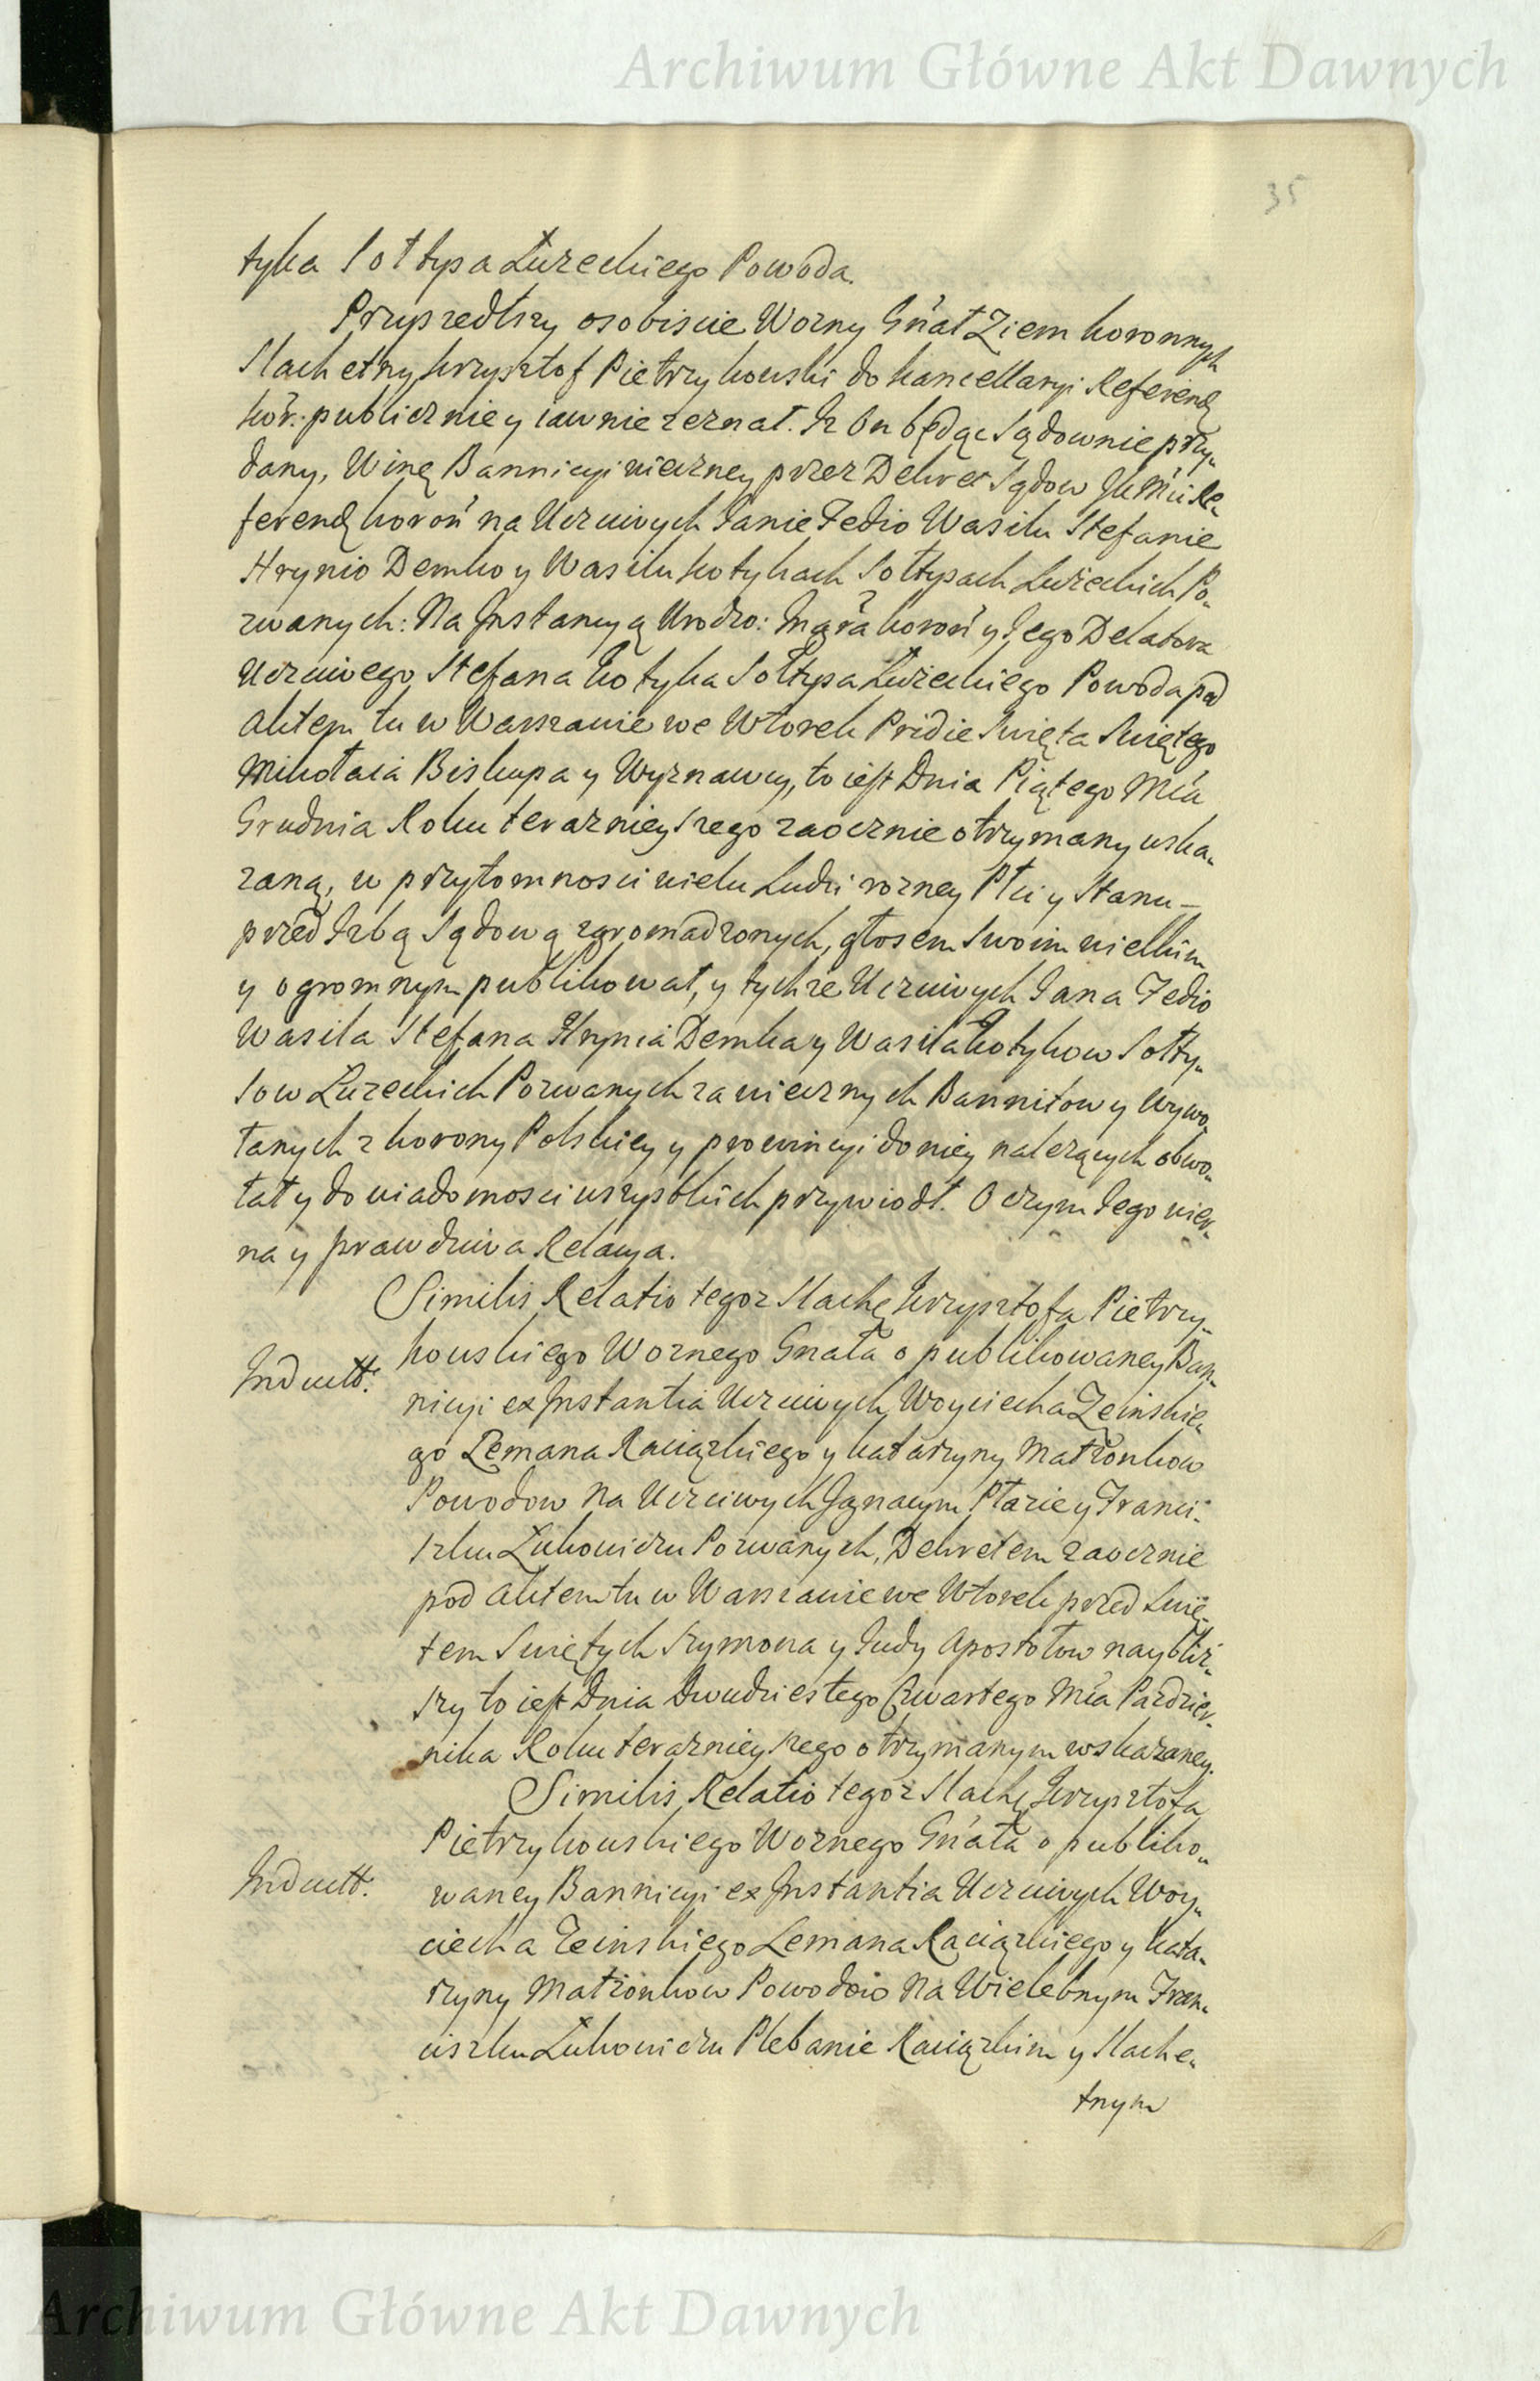 Archiwum Główne Akt Dawnych
35
tyka Sołtysa Łuzeckiego Powoda.
Przyszedłszy osobiscie Wozny Gńał Ziem koronnych
Slachetny Krzysztof Pietrzykowski do kancellaryi Referend
kor: publicznie y iawnie zeznał. Iz On będąc Sądownie przy„
dany, Winę Bannicyi wieczney przez Dekret Sądow JK Mci Re„
ferend koroń na Uczciwych Janie Fedio Wasilu Stefanie
Hrynio Demko y Wasilu kotykach Sołtysach Łuzeckich Po„
zwanych: Na Instancyą Urodzo: Instygatora koroń y Jego Delatora
Uczciwego Stefana kotyka Sołtysa Łuzeckiego Powoda pod
Aktem tu w Warszawie we Wtorek Pridie Swięta Swiętego
Mikołaia Biskupa y Wyznawcy, to iest Dnia Piątego Mca
Grudnia Roku terazniey szego zaocznie otrzymany wska„
zaną, w przytomnosci wielu Ludzi rozney Płci y Stanu –
przed Izbą Sądową zgromadzonych, głosem Swoim wielkim
y ogromnym publikował, y tychze Uczciwych Jana Fedio
Wasila Stefana Hrynia Demka y Wasila kotykow Sołty„
sow Łuzeckich Pozwanych za wiecznych Bannitow y Wywo„
łanych z korony Polskiey y prowincyi do niey nalezących obwo„
łał y do wiadomosci wszystkich przywiodł. O czym Jego wier„
na y prawdziwa Relacya.
Similis Relatio tegoz Slache Krzysztofa Pietrzy„
kowskiego Woznego Gnała o publikowaney Ban„
Indultt:
nicyi ex Instantia Uczciwych Woyciecha Zeinskie„
go Lemana Raciązkiego y katarzyny Małzonkow
Powodow na Uczciwych Ignacym Ptazie y Franci„
szku Zukowiczu Pozwanych, Dekretem zaocznie
pod Aktem tu w Warszawie we Wtorek przed Swię„
tem Swiętych Szymona y Judy Apostołow naybliz„
szy to iest Dnia Dwudziestego Czwartego Mca Pazdzier„
nika Roku terazniey szego otrzymanym wskazaney.
Similis Relatio tegoz Slache Krzysztofa
Pietrzykowskiego Woznego Gńała o publiko„
Indultt:
waney Bannicyi ex Instantia Uczciwych Woy„
ciecha Zeinskiego Lemana Raciązkiego y kata„
rzyny Małzonkow Powodow na Wielebnym Fran„
ciszku Zukowiczu Plebanie Raciązkim y Slache„
tnym
Archiwum Główne Akt Dawnych